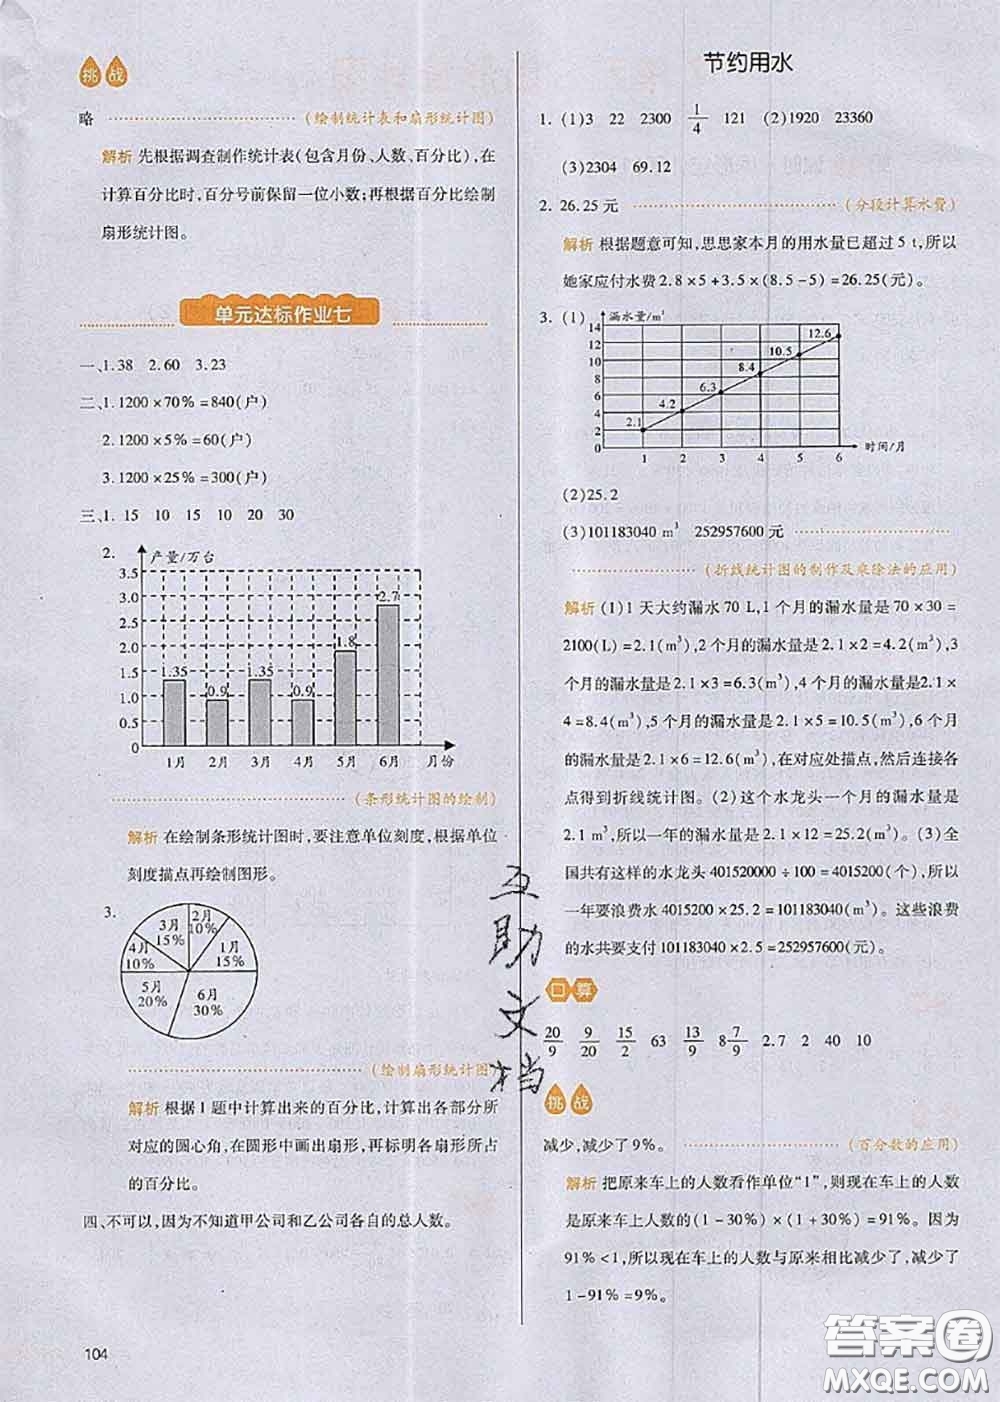 挑战
略 (绘制统计表和扇形统计图)
解析 先根据调查制作统计表(包含月份、人数、百分比),在
计算百分比时,百分号前保留一位小数;再根据百分比绘制
扇形统计图。
单元达标作业七
一、1.38 2.60 3.23
二、1.1200×70%=840(户)
2.1200×5%=60(户)
3.1200×25%=300(户)
三、1. 15 10 15 10 20 30
2.
产量/万台
3.5
3.0
2.5
2.0
1.5
1.0
0.5
0
1.35 0.9 1.35 0.9 1.8 2.7
1月 2月 3月 4月 5月 6月 月份
(条形统计图的绘制)
解析 在绘制条形统计图时,要注意单位刻度,根据单位
刻度描点再绘制图形。
3.
3月 15%
2月 10%
1月 15%
4月 10%
5月 20%
6月 30%
(绘制扇形统计图)
解析 根据1题中计算出来的百分比,计算出各部分所
对应的圆心角,在圆形中画出扇形,再标明各扇形所占
的百分比。
四、不可以,因为不知道甲公司和乙公司各自的总人数。
104
节约用水
1. (1)3 22 2300 1/4 121 (2)1920 23360
(3)2304 69.12
2. 26.25元 (分段计算水费)
解析 根据题意可知,思思家本月的用水量已超过5 t,所以
她家应付水费2.8×5+3.5×(8.5-5)=26.25(元)。
3. (1)
漏水量/m³
14
12
10
8
6
4
2
0
2.1 4.2 6.3 8.4 10.5 12.6
1 2 3 4 5 6 时间/月
(2)25.2
(3)101183040 m³ 252957600元
(折线统计图的制作及乘除法的应用)
解析 (1)1天大约漏水70 L,1个月的漏水量是70×30=
2100(L)=2.1(m³),2个月的漏水量是2.1×2=4.2(m³),3
个月的漏水量是2.1×3=6.3(m³),4个月的漏水量是2.1×
4=8.4(m³),5个月的漏水量是2.1×5=10.5(m³),6个月
的漏水量是2.1×6=12.6(m³),在对应处描点,然后连接各
点得到折线统计图。(2)这个水龙头一个月的漏水量是
2.1 m³,所以一年的漏水量是2.1×12=25.2(m³)。(3)全
国共有这样的水龙头401520000÷100=4015200(个),所以
一年要浪费水4015200×25.2=101183040(m³)。这些浪费
的水共要支付101183040×2.5=252957600(元)。
口算
20/9 9/20 15/2 63 13/9 8 7/9 2.7 2 40 10
挑战
减少,减少了9%。 (百分数的应用)
解析 把原来车上的人数看作单位“1”,则现在车上的人数
是原来车上人数的(1-30%)×(1+30%)=91%。因为
91%<1,所以现在车上的人数与原来相比减少了,减少了
1-91%=9%。
互助文档
答案圈
MXQE.COM